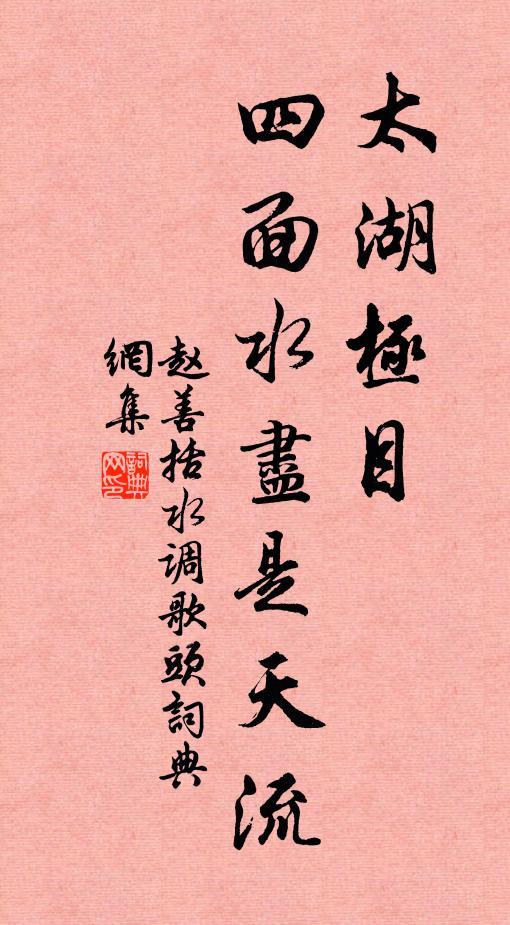 太湖極目
四面水盡是天流
赵善括水调歌頭詞典
網集
詞典网印